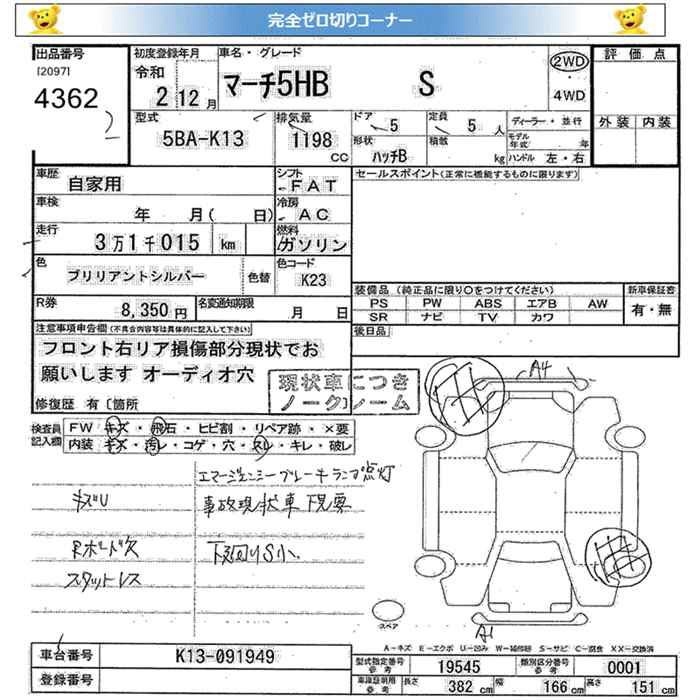 完全ゼロ切りコーナー
出品番号
[2097]
4362
初度登録年月
令和
2 12 月
車名・グレード
マーチ5HB S
2WD
・
4WD
評価点
外装 内装
型式
5BA-K13
排気量
1198
CC
ドア
5
形状
ハッチB
定員
5 人
積載
kg
ディーラー・並行
モデル年式 年
ハンドル 左・右
車歴
自家用
シフト
FAT
セールスポイント(正常に機能するものに限ります)
車検
年 月( 日)
冷房
AC
走行
3万1千015 km
燃料
ガソリン
色
ブリリアントシルバー
色替
色コード
K23
装備品(純正品に限り〇をつけてください)
PS PW ABS エアB AW
SR ナビ TV カワ
新車保証書
有・無
R券
8,350円
名変通知期限
月 日
後日品
注意事項申告欄(不具合内容等は具体的に記入して下さい)
フロント右リア損傷部分現状でお
願いします オーディオ穴
現状車につき
ノークレーム
修復歴 有〔箇所
検査員
記入欄
FW キズ・飛石・ヒビ割・リペア跡・×要
内装 キズ・汚レ・コゲ・穴・スレ・キレ・破レ
エマージェンシーブレーキランプ点灯
キズU
事故現状車 下見要
Rボード欠
下廻りS小
スタットレス
A4
A1
スペア
A-キズ E-エクボ U-凹み W-補修跡 S-サビ C-腐食 XX-交換済
車台番号
K13-091949
登録番号
型式指定番号
参考
19545
類別区分番号
参考
0001
車庫証明用
参考
長さ 382 cm
幅 166 cm
高さ 151 cm